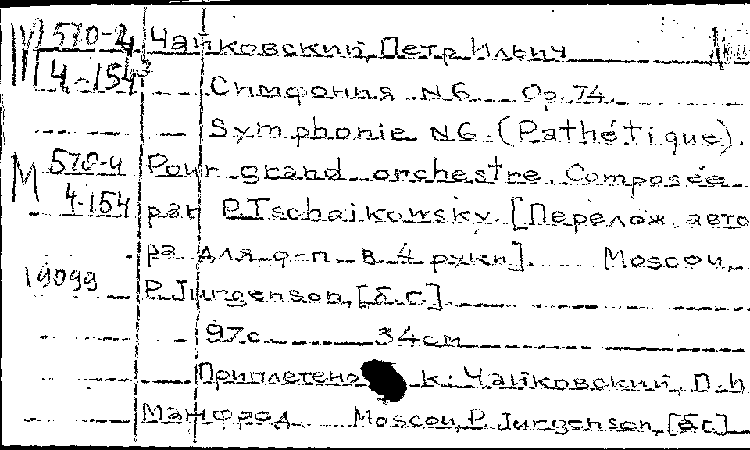 М 570-4 Чайковский, Петр Ильич
4-154 Симфония N6 Op. 74.
Symphonie N6. (Pathétique).
М 570-4 Pour grand orchestre Composée
4-154 par P. Tschaikowsky. [Перелож. авто
ра для ф-п. в 4 руки]. Moscou,
19099 P. Jurgenson, [б.г.].
97с. 34см
Приплетено к: Чайковский, П.И.
Манфред. Moscou, P. Jurgenson, [б.г.]